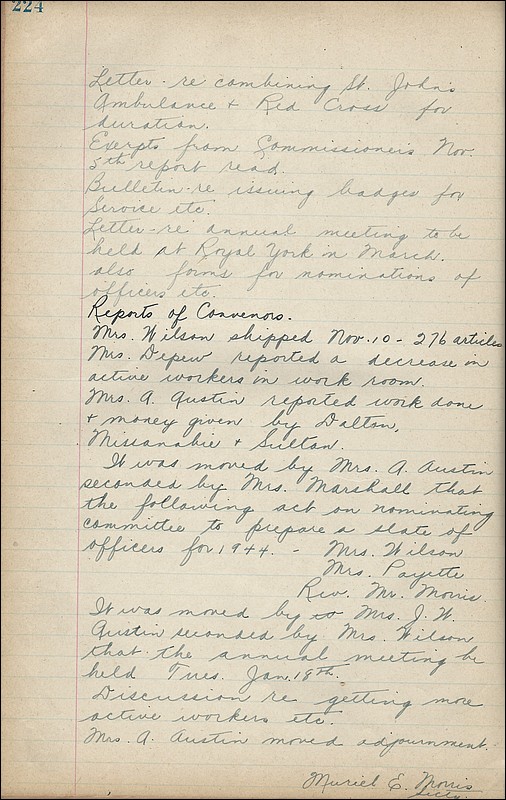 224
Letter - re combining St. John's
Ambulance & Red Cross for
duration.
Exerpts from Commissioners Nov.
5th report read.
Bulletin - re issuing badges for
Service etc.
Letter - re annual meeting to be
held at Royal York in March.
also forms for nominations of
officers etc.
Reports of Convenors.
Mrs. Wilson shipped Nov. 10 - 276 articles
Mrs. Depew reported a decrease in
active workers in work room.
Mrs. A. Austin reported work done
& money given by Dalton,
Missanabie & Sultan.
It was moved by Mrs. A. Austin
seconded by Mrs. Marshall that
the following act on nominating
committee to prepare a slate of
officers for 1944. - Mrs. Wilson
Mrs. Payette
Rev. Mr. Morris.
It was moved by to Mrs. J. W.
Austin seconded by Mrs. Wilson
that the annual meeting be
held Tues. Jan. 18th.
Discussion re getting more
active workers etc.
Mrs. A. Austin moved adjournment.
Muriel E. Morris
Secty.